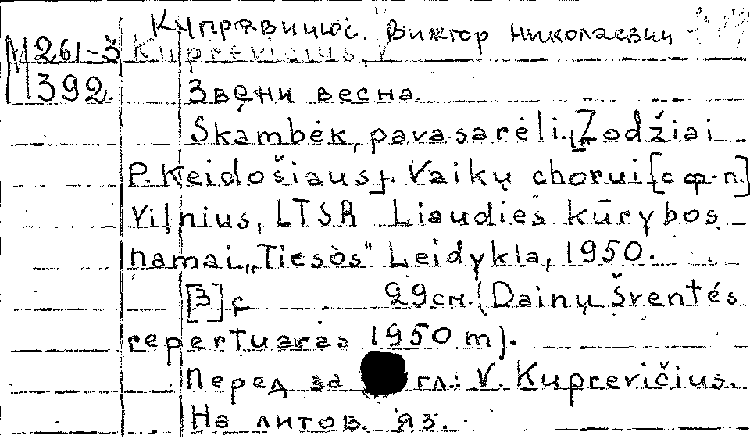 Купрявичюс, Виктор Николаевич
М261-3 Kuprevičius, V
М392 Звени весна.
Skambėk, pavasarėli. [Žodžiai
P. Keidošiaus]. Vaikų chorui [с ф-п.]
Vilnius, LTSR Liaudies kūrybos
namai, "Tiesos" Leidykla, 1950.
[3] с 29см. (Dainų šventės
repertuaras 1950 m).
Перед за гл.: V. Kuprevičius.
На литов. яз.